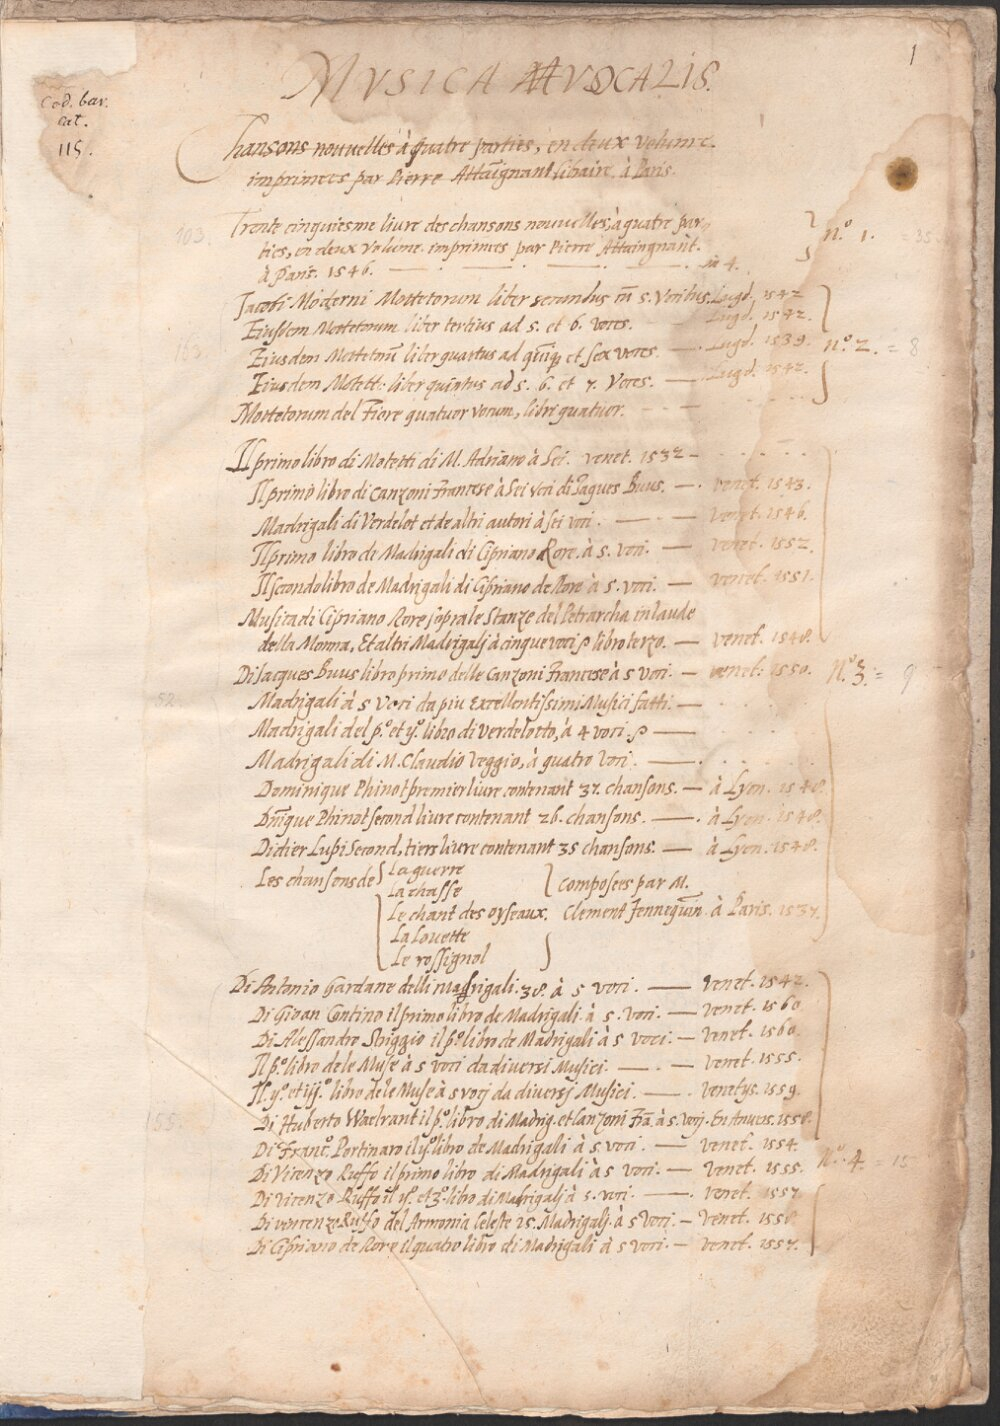 1
MVSICA VOCALIS.
Cod. bav.
cat.
115.
Chansons nouvelles à quatre parties, en deux volume.
imprimees par Pierre Attaignant libraire, à Paris.
Trente cinquiesme livre des chansons nouvelles, à quatre par
ties, en deux volume. imprimees par Pierre Attaingnant.
à Paris. 1546. — in 4.
N.º 1.
103.
Jacobi Moderni Mottetorum liber secundus cū 5. Vocibus. Lugd. 1542
Eiusdem Mottetorum liber tertius ad 5. et 6. voces. Lugd. 1542.
Eiusdem Mottetorū liber quartus ad quīqz et sex voces. — Lugd. 1539.
Eiusdem Motett: liber quintus ad 5. 6. et 7. Voces. — Lugd. 1542.
N.º 2. = 8
163.
Mottetorum del Fiore quatuor vocum, libri quatuor. - - —
Il primo libro di Motetti di M. Adriano à Sei. venet. 1532 –
Il primo libro di Canzoni Francese à Sei voci di Jaques Buus. — venet. 1543.
Madrigali di Verdelot et de altri autori à sei voci. — venet. 1546.
Il primo libro de Madrigali di Cipriano Rore. à 5. voci. — venet. 1552.
Il secondo libro de Madrigali di Cipriano de Rore à 5. voci. — venet. 1551.
Musica di Cipriano Rore sopra le Stanze del Petrarcha in laude
della Monna, Et altri Madrigalj à cinque voci libro terzo. — venet. 1548.
Di Jacques Buus libro primo delle Canzoni Francese à 5 voci. — venet: 1550.
N.º 3. = 9
52.
Madrigali à 5 voci da piu Excellentissimi Musici fatti. —
Madrigali del p.º et y.º libro di Verdelotto, à 4 voci —
Madrigali di M. Claudio Veggio, à quatro voci. —
Dominique Phinot premier livre contenant 37. chansons. — à Lyon. 1548.
Dniqque Phinot second livre contenant 26. chansons. — à Lyon. 1548.
Didier Lupi Second, tiers livre contenant 35 chansons. — à Lyon. 1548.
Les chansons de { La guerre
La chasse
Le chant des oyseaux.
La Louette
Le rossignol
} composees par M.
Clement Jennequin. à Paris. 1537.
Di Antonio Gardane delli Madrigali. 38. à 5 voci. — Venet. 1542.
Di Gioan Contino il primo libro de Madrigali à 5. voci. — Venet. 1560
Di Alessandro Striggio il p.º libro de Madrigali à 5 voci. — Venet. 1560.
Il p.º libro de le Muse à 5 voci da diversi Musici. — venet. 1555.
Il y.º et iij.º libro de le Muse à 5 vocj da diversj Musici. — Venetys. 1559.
Di Huberto Waelrant il p.º libro di Madrig. et Canzoni Frā. à 5. vocj. En Anvers. 1558.
155.
Di Franc.º Portinaro il y.º libro de Madrigali à 5. voci. — venet. 1554.
N.º 4. = 15
Di Vicenzo Ruffo il primo libro di Madrigali à 5 voci. — Venet. 1555.
Di Vicenzo Ruffo il y.º et 3.º libro di Madrigalj à 5. voci. — venet. 1557
Di Vincenzo Ruffo del Armonia Celeste 25. Madrigalj. à 5 voci. — Venet. 1558
Di Cipriano de Rore il quatro libro di Madrigali à 5 voci. — venet. 1557.